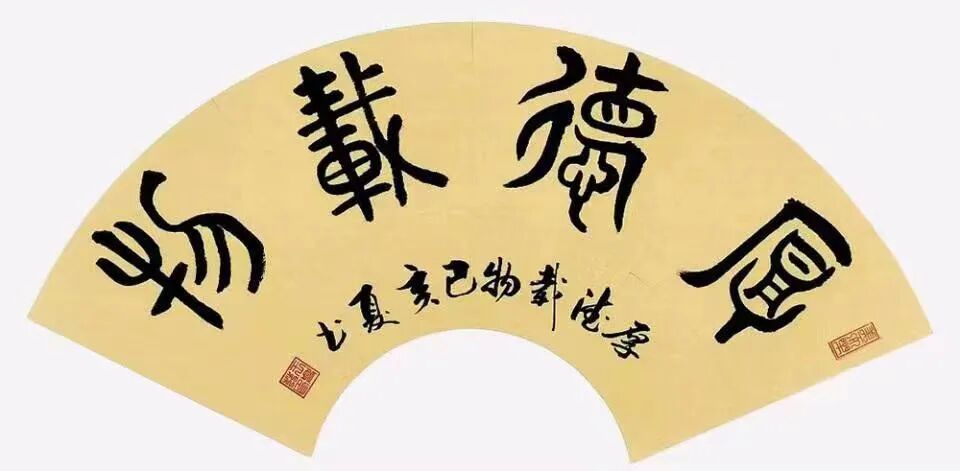 厚德載物
厚德載物己亥夏書